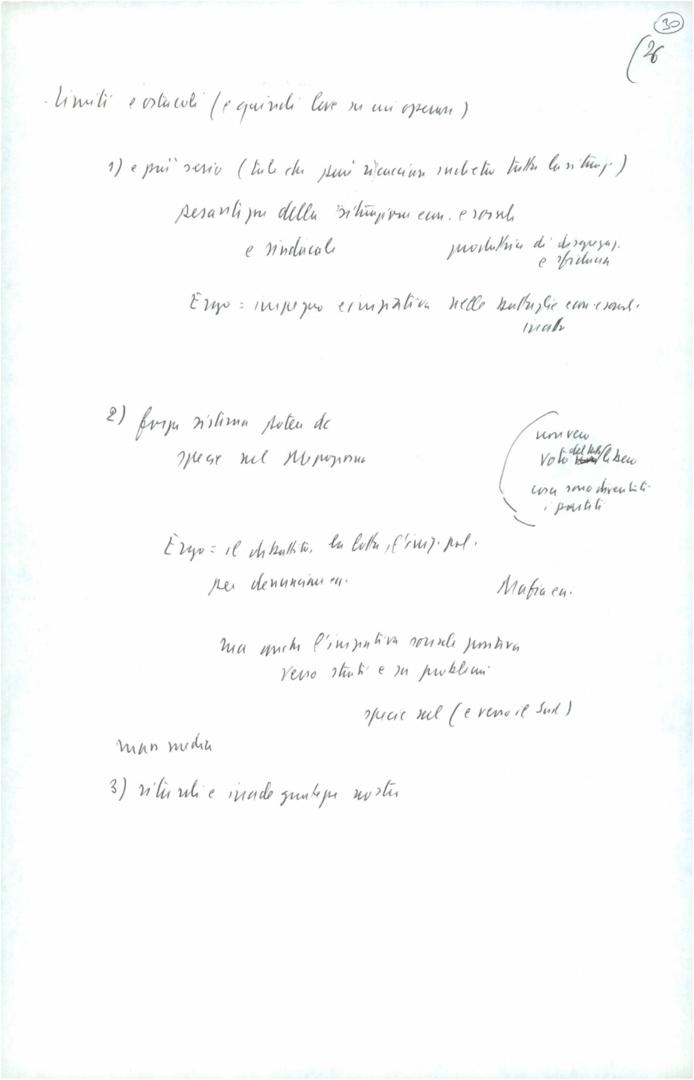 30
26
- Limiti e ostacoli (e quindi dove su cui operare)
1) e più serio (tale che può ricacciare indietro tutta la situaz.)
pesantezza della situazione econ. e sociale
e sindacale produttrice di disgregaz.
e sfiducia
Ergo = impegno e iniziativa nelle battaglie econ. e social.
2) forza sistema potere dc
specie nel Mezzogiorno
non vero
voto del tutto libero
cosa sono diventati
i partiti
Ergo = il dibattito, la lotta, l'iniz. pol.
per denunciare ecc.
Mafia ecc.
ma anche l'iniziativa sociale positiva
verso strati e su problemi
specie nel (e verso il Sud)
mass media
3) ritardi e inadeguatezze nostre